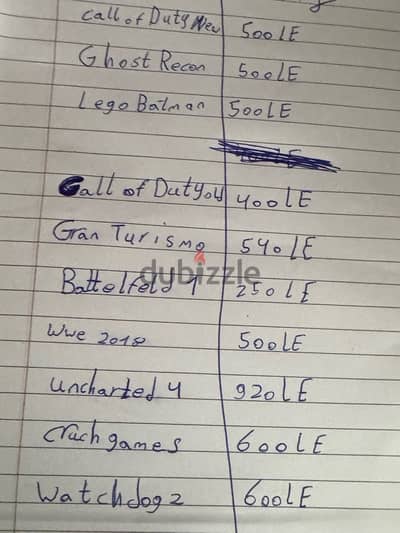 Call of Duty New 500LE
Ghost Recon 500LE
Lego Batman 500LE
Call of Duty old 400LE
Gran Turismo 540LE
Battelfeld 1 250LE
dubizzle
WWE 2018 500LE
uncharted 4 920LE
Crach games 600LE
Watchdog 2 600LE